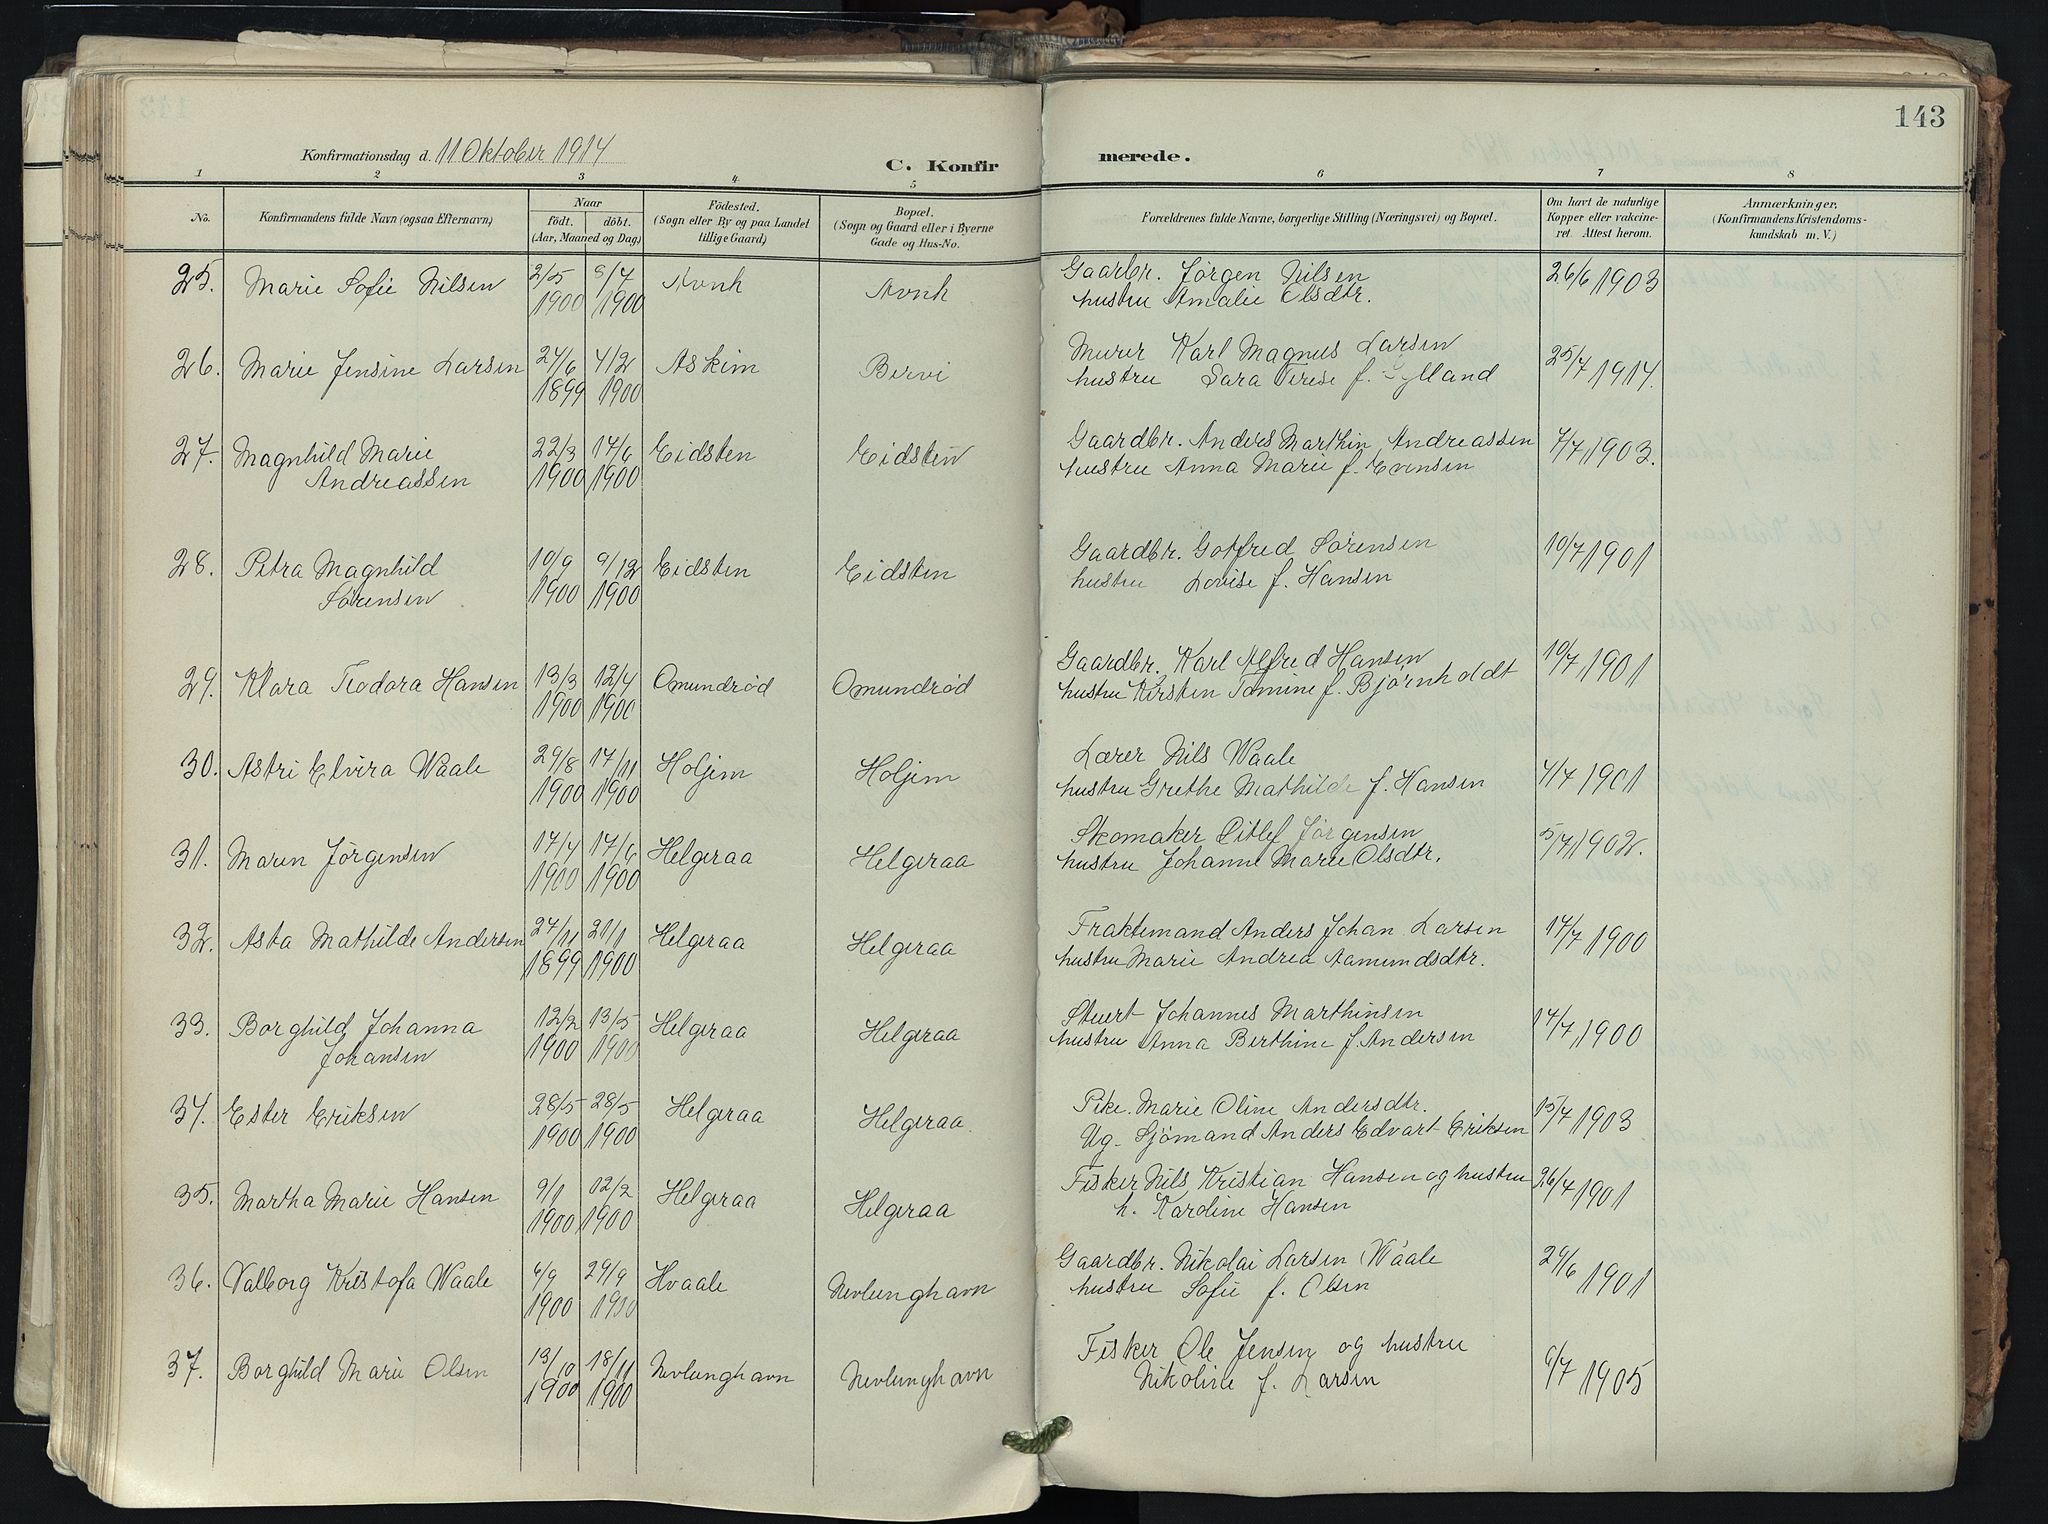 143
Konfirmationsdag d. 11 Oktober 1914
C. Konfirmerede.
1 2 3 4 5 6 7 8
No. Konfirmandens fulde Navn (ogsaa Efternavn) Naar født. døbt. (Aar, Maaned og Dag) Fødested. (Sogn eller By og paa Landet tillige Gaard) Bopæl. (Sogn og Gaard eller i Byerne Gade og Hus-No. Forældrenes fulde Navne, borgerlige Stilling (Næringsvei) og Bopæl. Om havt de naturlige Kopper eller vakcineret. Attest herom. Anmærkninger, (Konfirmandens Kristendomskundskab m. V.)
25. Marie Sofie Nilsen 2/5 1900 /4 1900 Avnh Avnh Gaarbr. Jørgen Nilsen 26/6 1903
hustru Amalie Olsdtr.
26. Marie Jensine Larsen 24/6 1899 4/2 1900 Askim Bervi Murer Karl Magnus Larsen 25/7 1914.
hustru Sara Terese f. Gylland
27. Magnhild Marie 22/3 1900 17/6 1900 Eidsten Eidsten Gaardbr. Anders Marthin Andreassen 7/7 1903.
Andreassen hustru Anna Marie f. Evensen
28. Petra Magnhild 10/9 1900 9/12 1900 Eidsten Eidsten Gaardbr. Gotfred Sørensen 10/7 1901
Sørensen hustru Lovise f. Hansen
29. Klara Teodora Hansen 13/3 1900 12/4 1900 Omundrød Omundrød Gaardbr. Karl Alfred Hansen 10/7 1901
hustru Kirsten Tomine f. Bjørnholdt
30. Astri Elvira Waale 29/8 1900 17/11 1900 Holjem Holjem Lærer Nils Waale 4/7 1901
hustru Grethe Mathilde f. Hansen
31. Maren Jørgensen 17/4 1900 17/6 1900 Helgeraa Helgeraa Skomaker Ditlef Jørgensen 5/7 1902.
hustru Johanne Marie Olsdtr.
32. Asta Mathilde Andersen 24/11 1899 21/1 1900 Helgeraa Helgeraa Fraktemand Anders Johan Larsen 17/7 1900
hustru Marie Andrea Aamundsdtr.
33. Borghild Johanna 12/2 1900 13/5 1900 Helgeraa Helgeraa Stuert Johannes Marthinsen 17/7 1900
Johansen hustru Anna Berthine f. Andersen
34. Ester Eriksen 28/5 1900 28/5 1900 Helgeraa Helgeraa. Pike. Marie Oline Andersdtr. 15/7 1903
Ug. Sjømand Anders Edvart Eriksen
35. Martha Marie Hansen 9/1 1900 12/2 1900 Helgeraa Helgeraa Fisker Nils Kristian Hansen og hustru 26/7 1901
h. Karoline Hansen
36. Valborg Kristofa Waale 6/9 1900 29/9 1900 Hvaale Nevlunghavn Gaardbr. Nikolai Larsen Waale 29/6 1901
hustru Sofie f. Olsen
37. Borghild Marie Olsen 13/10 1900 18/11 1900 Nevlunghavn Nevlunghavn Fisker Ole Jensen og hustru 6/7 1905
Nikoline f. Larsen